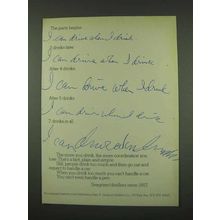 The party begins.
I can drive when I drink.
2 drinks later.
I can drive when I drink.
After 4 drinks.
I can drive when I drink
After 5 drinks.
I can drive when I drink
7 drinks in all.
I can drive when I drink
The more you drink, the more coordination you
lose. That's a fact, plain and simple.
Still, people drink too much and then go out and
expect to handle a car.
When you drink too much you can't handle a car.
You can't even handle a pen.
Seagram/distillers since 1857.